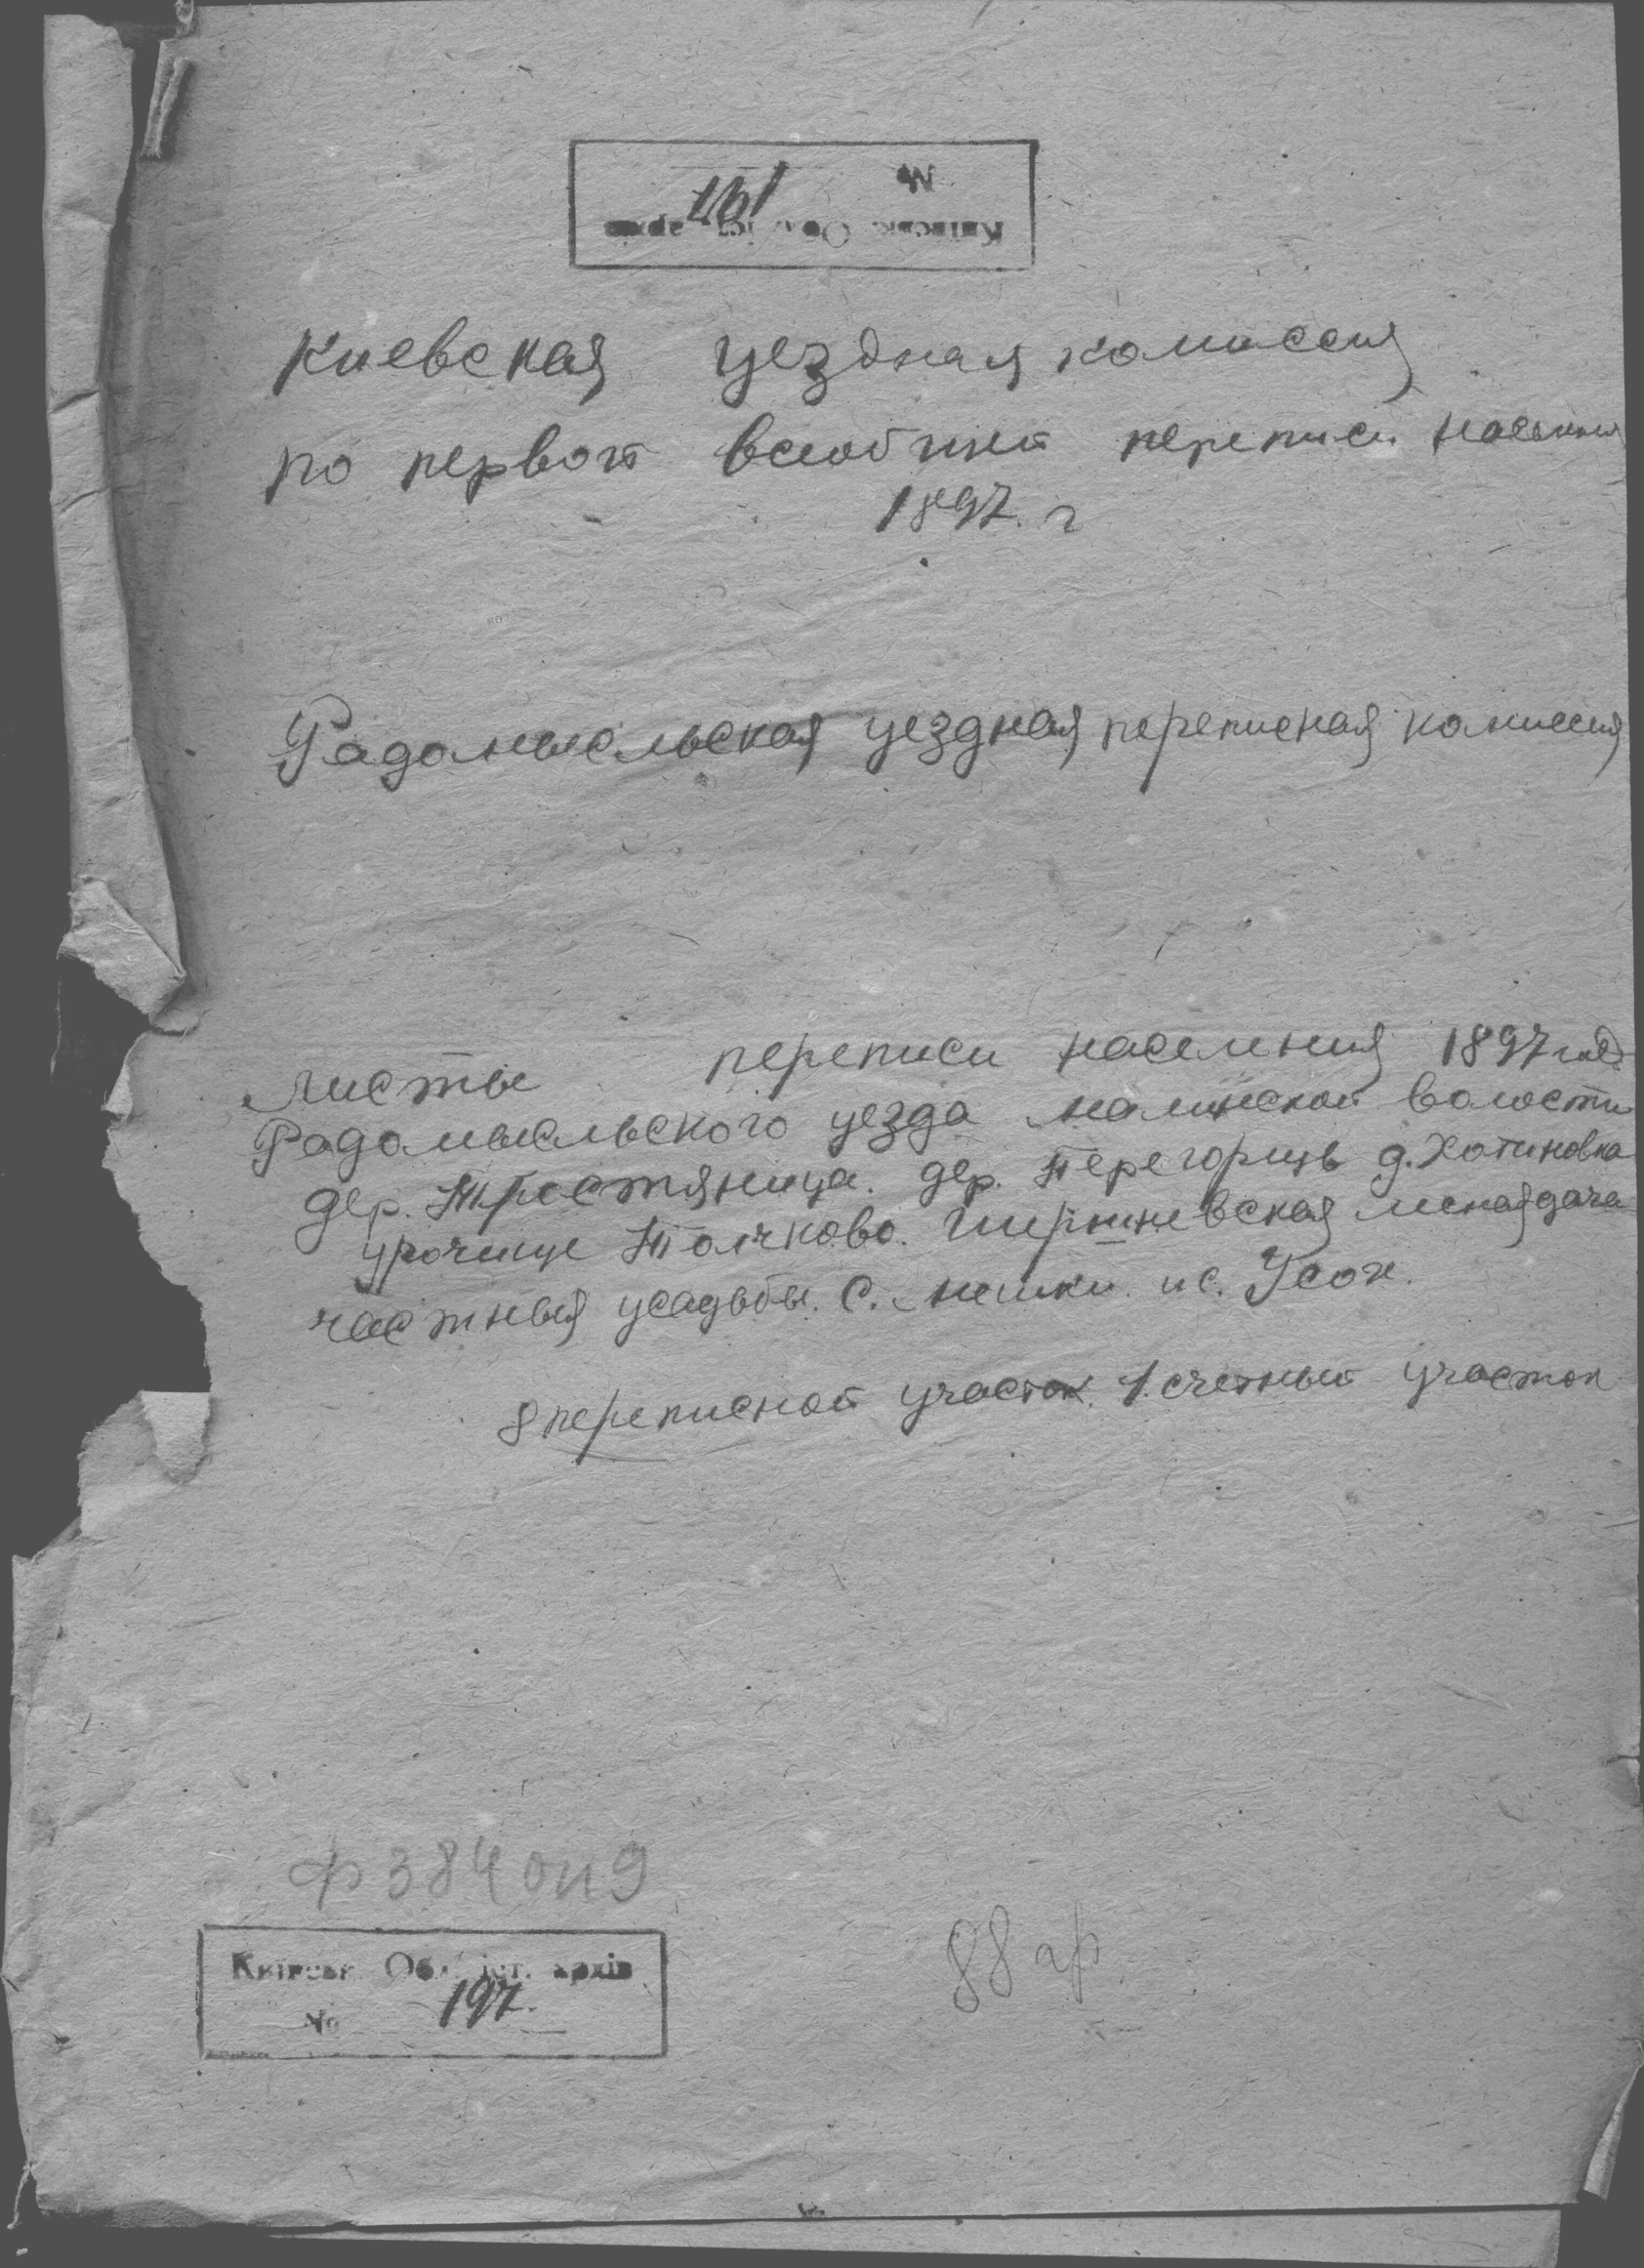 № 197
Київськ. Обл. іст. архів
Киевская уездная комиссия
по первой всеобщей переписи населения
1897 г
Радомысльская уездная переписная комиссия
Листы переписи населения 1897 года
Радомысльского уезда малинской волости
дер. Тростяница. дер. Перегорищь д. Хотиновка
урочище Толчково. лесная дача
частныя усадьбы. С. и с.
8 переписной участок. 1. счетный участок
ф 384 оп 9
88 гр
Київськ. Обл. іст. архів
№ 197.